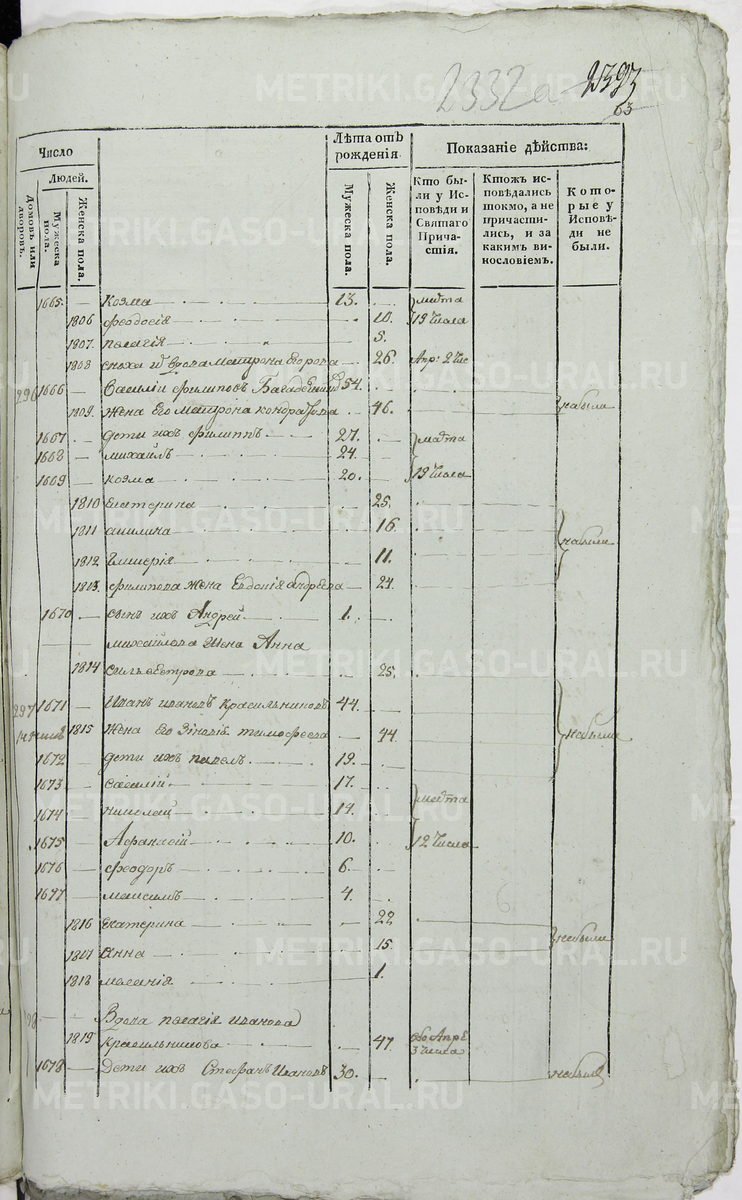 2332а 2393
63
Число
Людей.
Домовъ или дворовъ.
Мужеска пола.
Женска пола.
Лѣта отъ рожденія
Мужеска пола.
Женска пола.
Показаніе дѣйства:
Кто были у Исповѣди и Святаго Причастія.
Ктожъ исповѣдались токмо, а не причастились, и за какимъ винословіемъ.
Которые у Исповѣди не были.
1665. Козма 13. марта
1806 феодосія 10. 13 числа
1807. пелагія 5.
1808 сноха вдова матрона Егорова 26. Апр: 2 чис
296 1666 Василіи филиповъ 54.
1809. жена Его матрона кондратова 46. небыли
1667 дети ихъ филиппъ 27. марта
1668 михаилъ 24.
1669 козма 20. 13 числа
1810 Екатерина 25.
1811 акилина 16. небыли
1812 Гликерія 11.
1813. филипова жена Евдокія андреева 24.
1670 сынъ ихъ Андрей 1.
михайлова жена Анна
1814 сильвестрова 25.
297 1671 Иванъ ивановъ красильниковъ 44.
1815 жена Его Зиновія тимофеева 44. небыли
1672 дети ихъ павелъ 19.
1673 василій 17. марта
1674 николай 14.
1675 Афанасій 10. 12 числа
1676 феодоръ 6.
1677 максимъ 4.
1816 Екатерина 22.
1817 Анна 15. небыли
1818 маланія 1.
298 Вдова пелагія иванова
1819 красильникова 47. Апрѣ
3 числа
1678 Дети ихъ Стефанъ Ивановъ 30. небылъ
METRIKI.GASO-URAL.RU